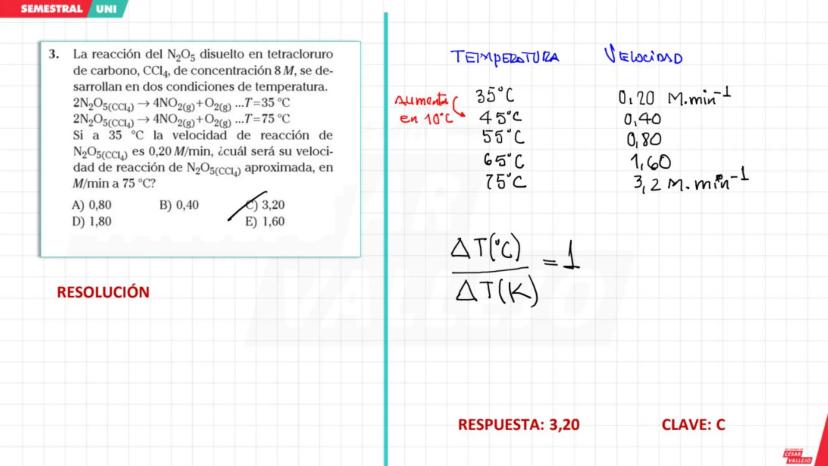 SEMESTRAL UNI
3. La reacción del N₂O₅ disuelto en tetracloruro
de carbono, CCl₄, de concentración 8 M, se de-
sarrollan en dos condiciones de temperatura.
2N₂O₅(CCl₄) → 4NO₂(g)+O₂(g) ...T=35 °C
2N₂O₅(CCl₄) → 4NO₂(g)+O₂(g) ...T=75 °C
Si a 35 °C la velocidad de reacción de
N₂O₅(CCl₄) es 0,20 M/min, ¿cuál será su veloci-
dad de reacción de N₂O₅(CCl₄) aproximada, en
M/min a 75 °C?
A) 0,80 B) 0,40 C) 3,20
D) 1,80 E) 1,60
RESOLUCIÓN
TEMPERATURA VELOCIDAD
Aumenta
en 10°C
35°C 0,20 M.min⁻¹
45°C 0,40
55°C 0,80
65°C 1,60
75°C 3,2 M.min⁻¹
ΔT(°C)
ΔT(K)
= 1
RESPUESTA: 3,20 CLAVE: C
CÉSAR
VALLEJO